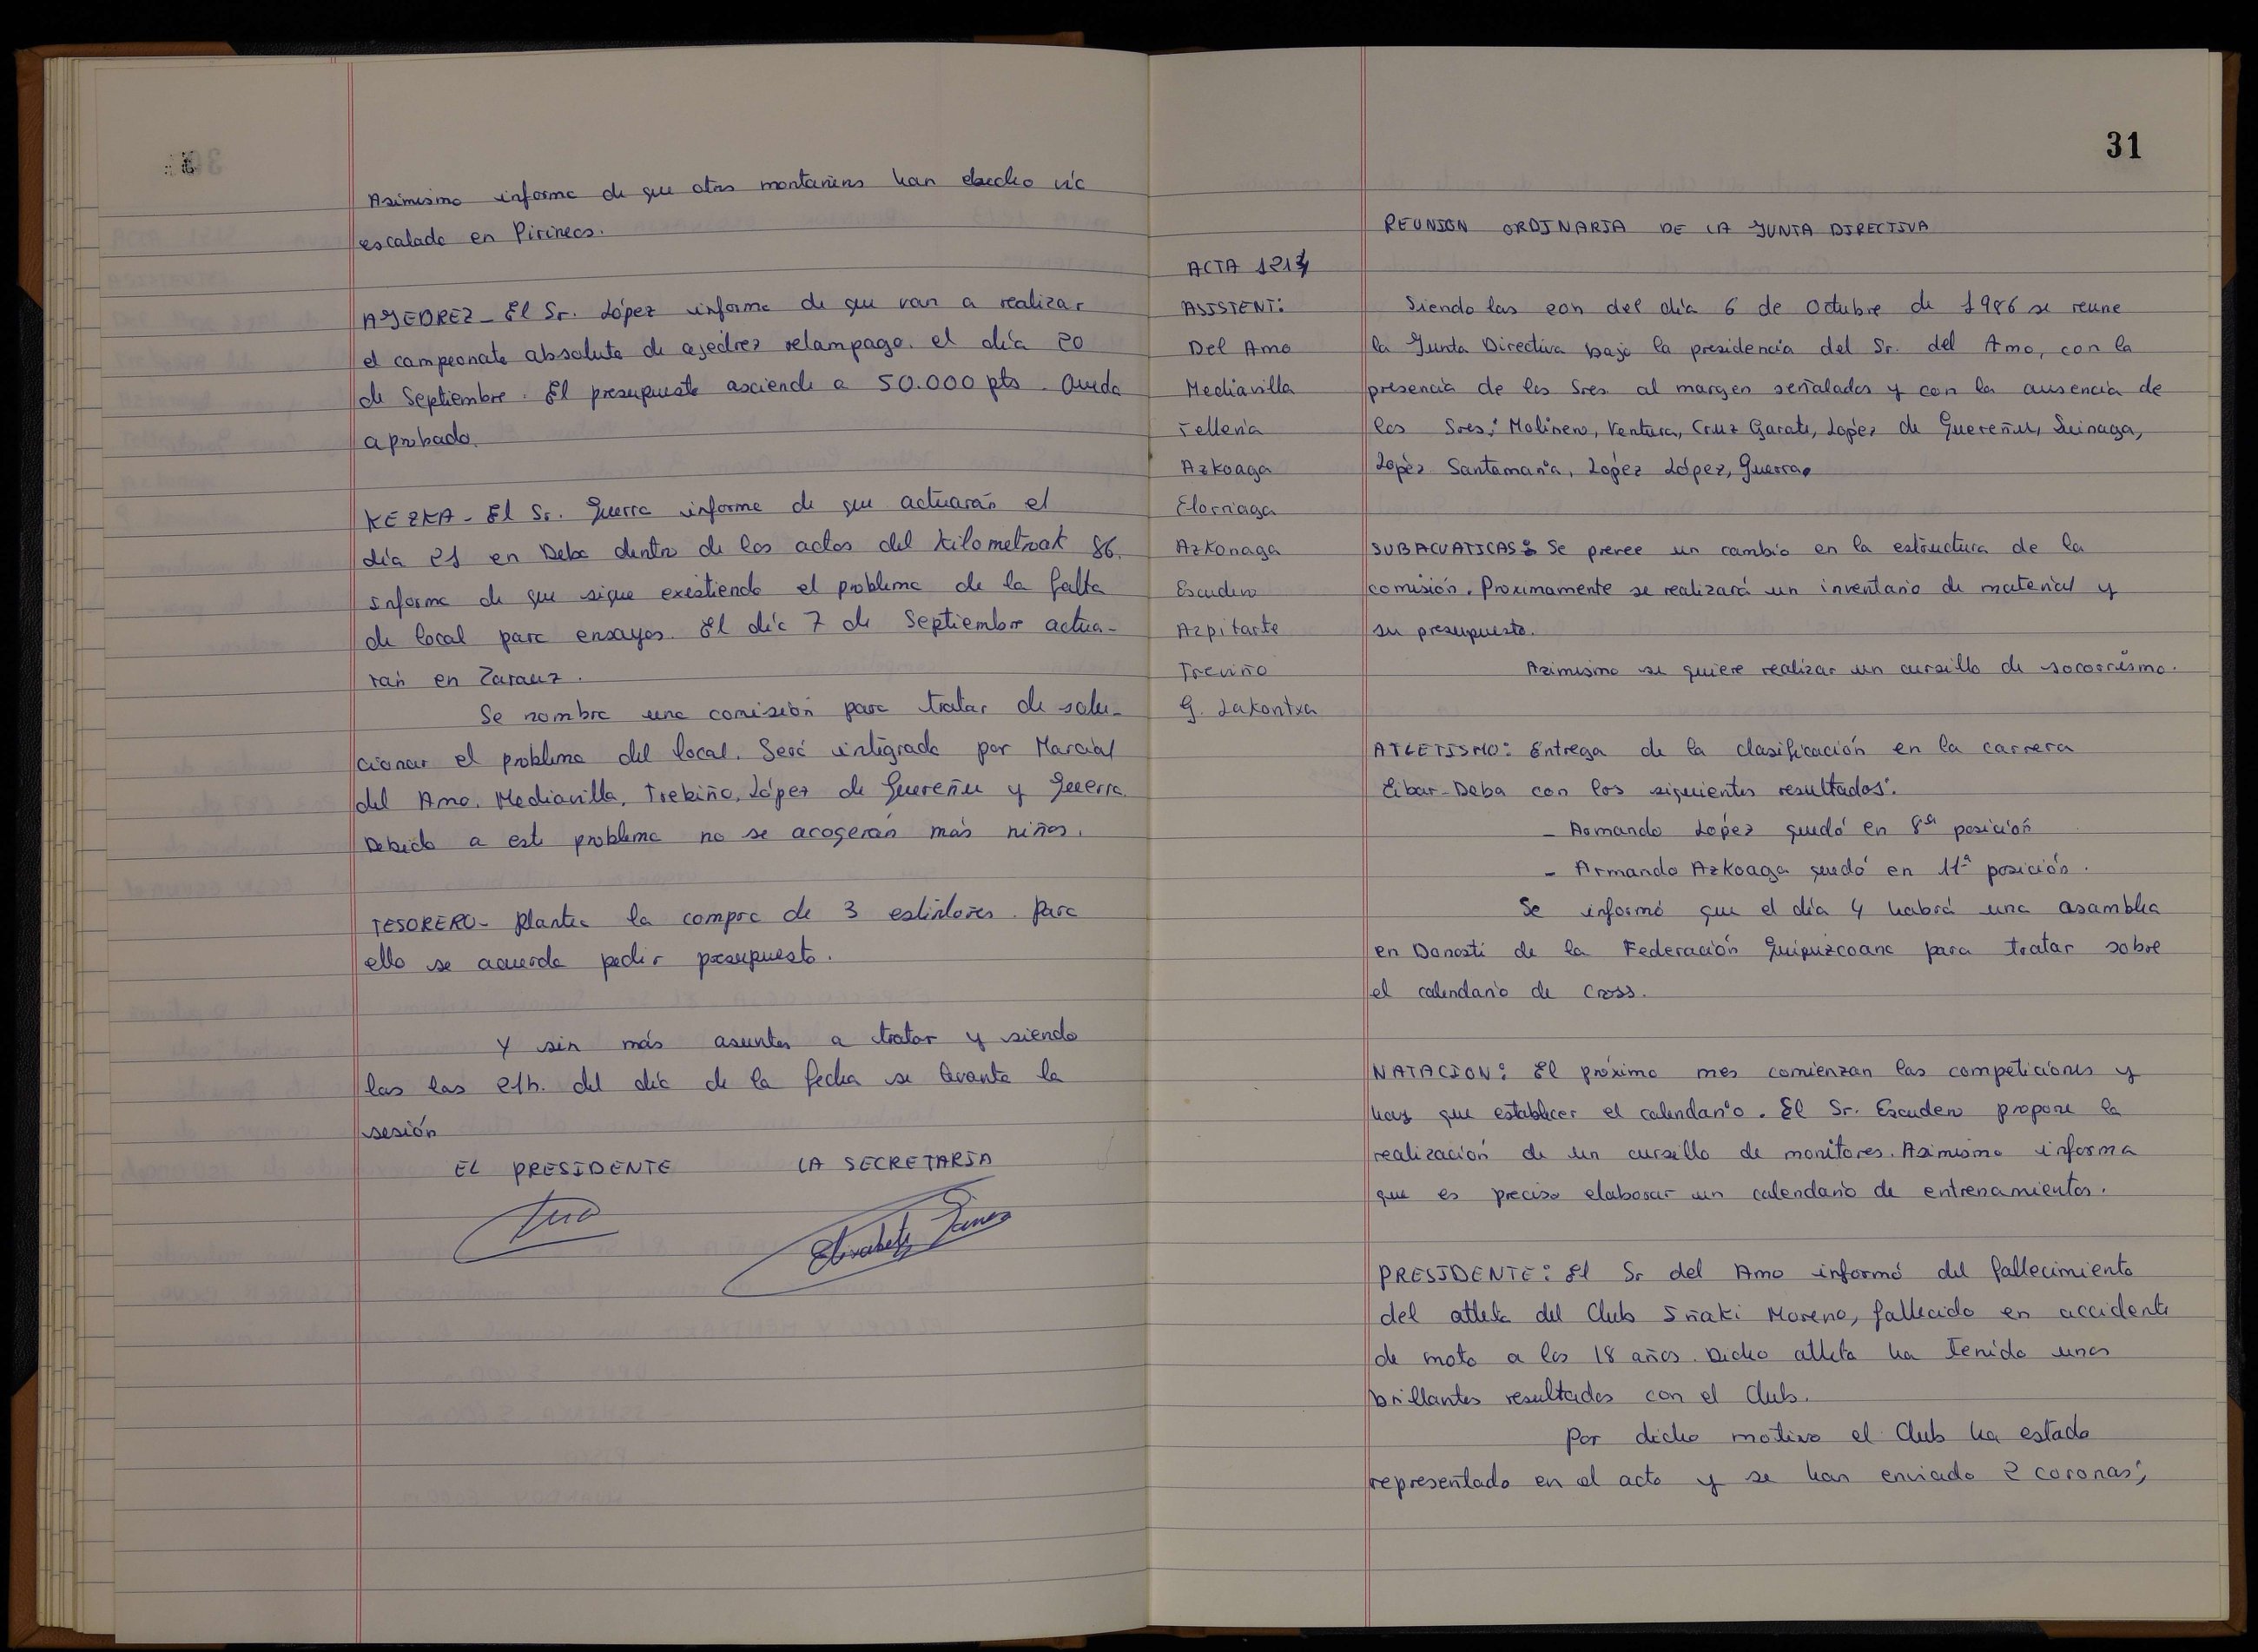 Asimismo informa de que otros montañeros han hecho vía
escalada en Pirineos.
AJEDREZ - El Sr. López informa de que van a realizar
el campeonato absoluto de ajedrez relampago. el día 20
de Septiembre. El presupuesto asciende a 50.000 pts. Queda
aprobado.
KEZKA - El Sr. Guerra informa de que actuarán el
día 21 en Deba dentro de los actos del Kilometroak 86.
Informa de que sigue existiendo el problema de la falta
de local para ensayos. El día 7 de Septiembre actua-
rán en Zarauz.
Se nombra una comisión para tratar de solu-
cionar el problema del local. Será integrada por Marcial
del Amo, Mediavilla, Trebiño, López de Guereñu y Guerra.
Debido a este problema no se acogerán más niños.
TESORERO - Plantea la compra de 3 estintores. Para
ello se acuerda pedir presupuesto.
Y sin más asuntos a tratar y siendo
las las 21h. del día de la fecha se levanta la
sesión
EL PRESIDENTE LA SECRETARIA
31
REUNION ORDINARIA DE LA JUNTA DIRECTIVA
ACTA 1214
ASISTENT:
Del Amo
Mediavilla
Telleria
Azkoaga
Elorriaga
Azkonaga
Escudero
Azpitarte
Treviño
G. Lakontxa
Siendo las 20h del día 6 de Octubre de 1986 se reune
la Junta Directiva bajo la presidencia del Sr. del Amo, con la
presencia de los Sres. al margen señalados y con la ausencia de
los Sres: Molinero, Ventura, Cruz Garate, López de Guereñu, Suinaga,
López Santamaría, López López, Guerra.
SUBACUATICAS: Se prevee un cambio en la estructura de la
comisión. Proximamente se realizará un inventario de material y
su presupuesto.
Asimismo se quiere realizar un cursillo de socorrismo.
ATLETISMO: Entrega de la clasificación en la carrera
Eibar-Deba con los siguientes resultados:
- Armando López quedó en 8ª posición
- Armando Azkoaga quedó en 11ª posición.
Se informó que el día 4 habrá una asamblea
en Donosti de la Federación Guipuzcoana para tratar sobre
el calendario de Cross.
NATACION: El próximo mes comienzan las competiciones y
hay que establecer el calendario. El Sr. Escudero propone la
realización de un cursillo de monitores. Asimismo informa
que es preciso elaborar un calendario de entrenamientos.
PRESIDENTE: El Sr del Amo informó del fallecimiento
del atleta del Club Iñaki Moreno, fallecido en accidente
de moto a los 18 años. Dicho atleta ha tenido unos
brillantes resultados con el Club.
Por dicho motivo el Club ha estado
representado en el acto y se han enviado 2 coronas;